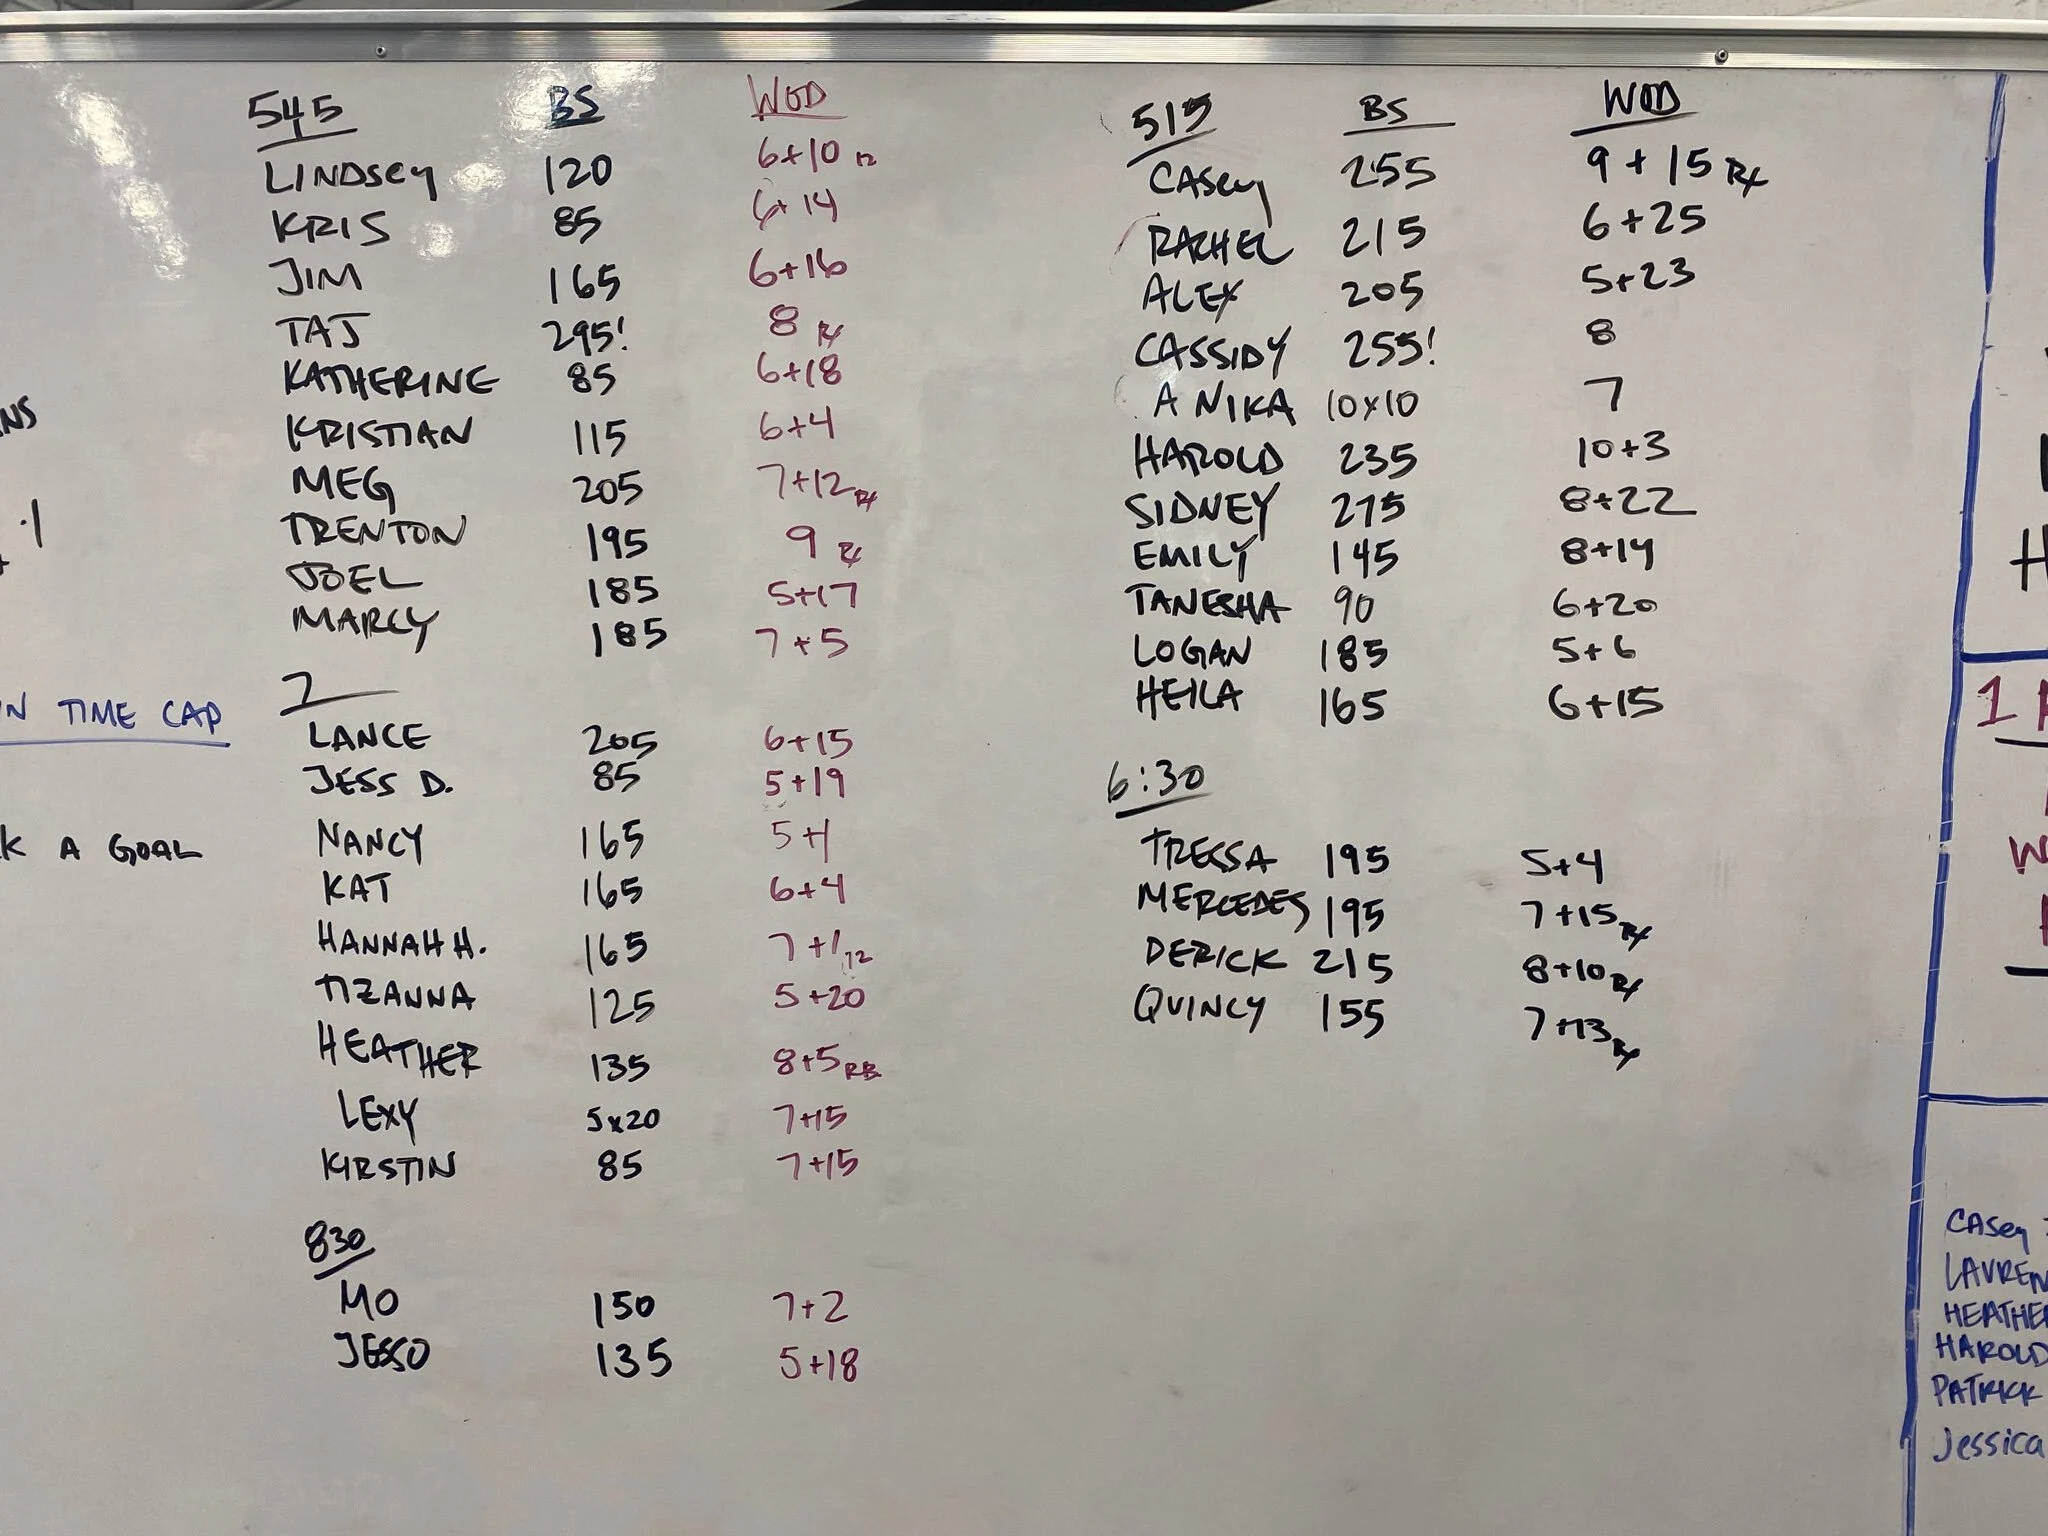 545 BS WOD
LINDSEY 120 6+10 12
KRIS 85 6+14
JIM 165 6+16
TAJ 295! 8 Rx
KATHERINE 85 6+18
KRISTIAN 115 6+4
MEG 205 7+12 Rx
TRENTON 195 9 Rx
JOEL 185 5+17
MARCY 185 7+5
7
LANCE 205 6+15
JESS D. 85 5+19
NANCY 165 5+1
KAT 165 6+4
HANNAH H. 165 7+1 12
TIZANNA 125 5+20
HEATHER 135 8+5
LEXY 5x20 7+15
KIRSTIN 85 7+15
830
MO 150 7+2
JESSO 135 5+18
515 BS WOD
CASEY 255 9+15 Rx
RACHEL 215 6+25
ALEX 205 5+23
CASSIDY 255! 8
ANIKA 10x10 7
HAROLD 235 10+3
SIDNEY 275 8+22
EMILY 145 8+14
TANESHA 90 6+20
LOGAN 185 5+6
HEILA 165 6+15
6:30
TRESSA 195 5+4
MERCEDES 195 7+15 Rx
DERICK 215 8+10 Rx
QUINCY 155 7+13 Rx
TIME CAP
A GOAL
1
CASEY
LAUREN
HEATHER
HAROLD
PATRICK
Jessica